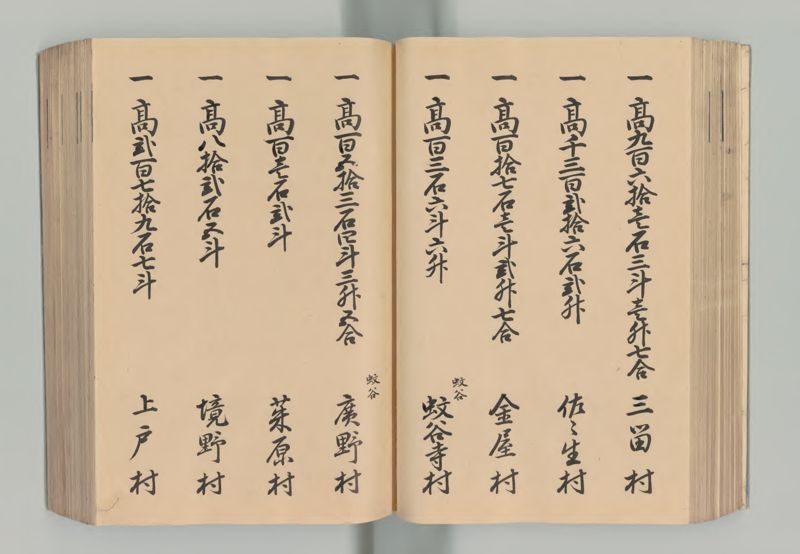 一 高九百六拾壱石三斗壱升七合 三笛村
一 高千三百弐拾六石弐升 佐々生村
一 高百拾七石壱斗弐升七合 金屋村
一 高百三石六斗六升 蚊谷寺村
蚊谷
一 高百五拾三石四斗三升五合 廣野村
蚊谷
一 高百壱石弐斗 菜原村
一 高八拾弐石五斗 境野村
一 高弐百七拾九石七斗 上戸村